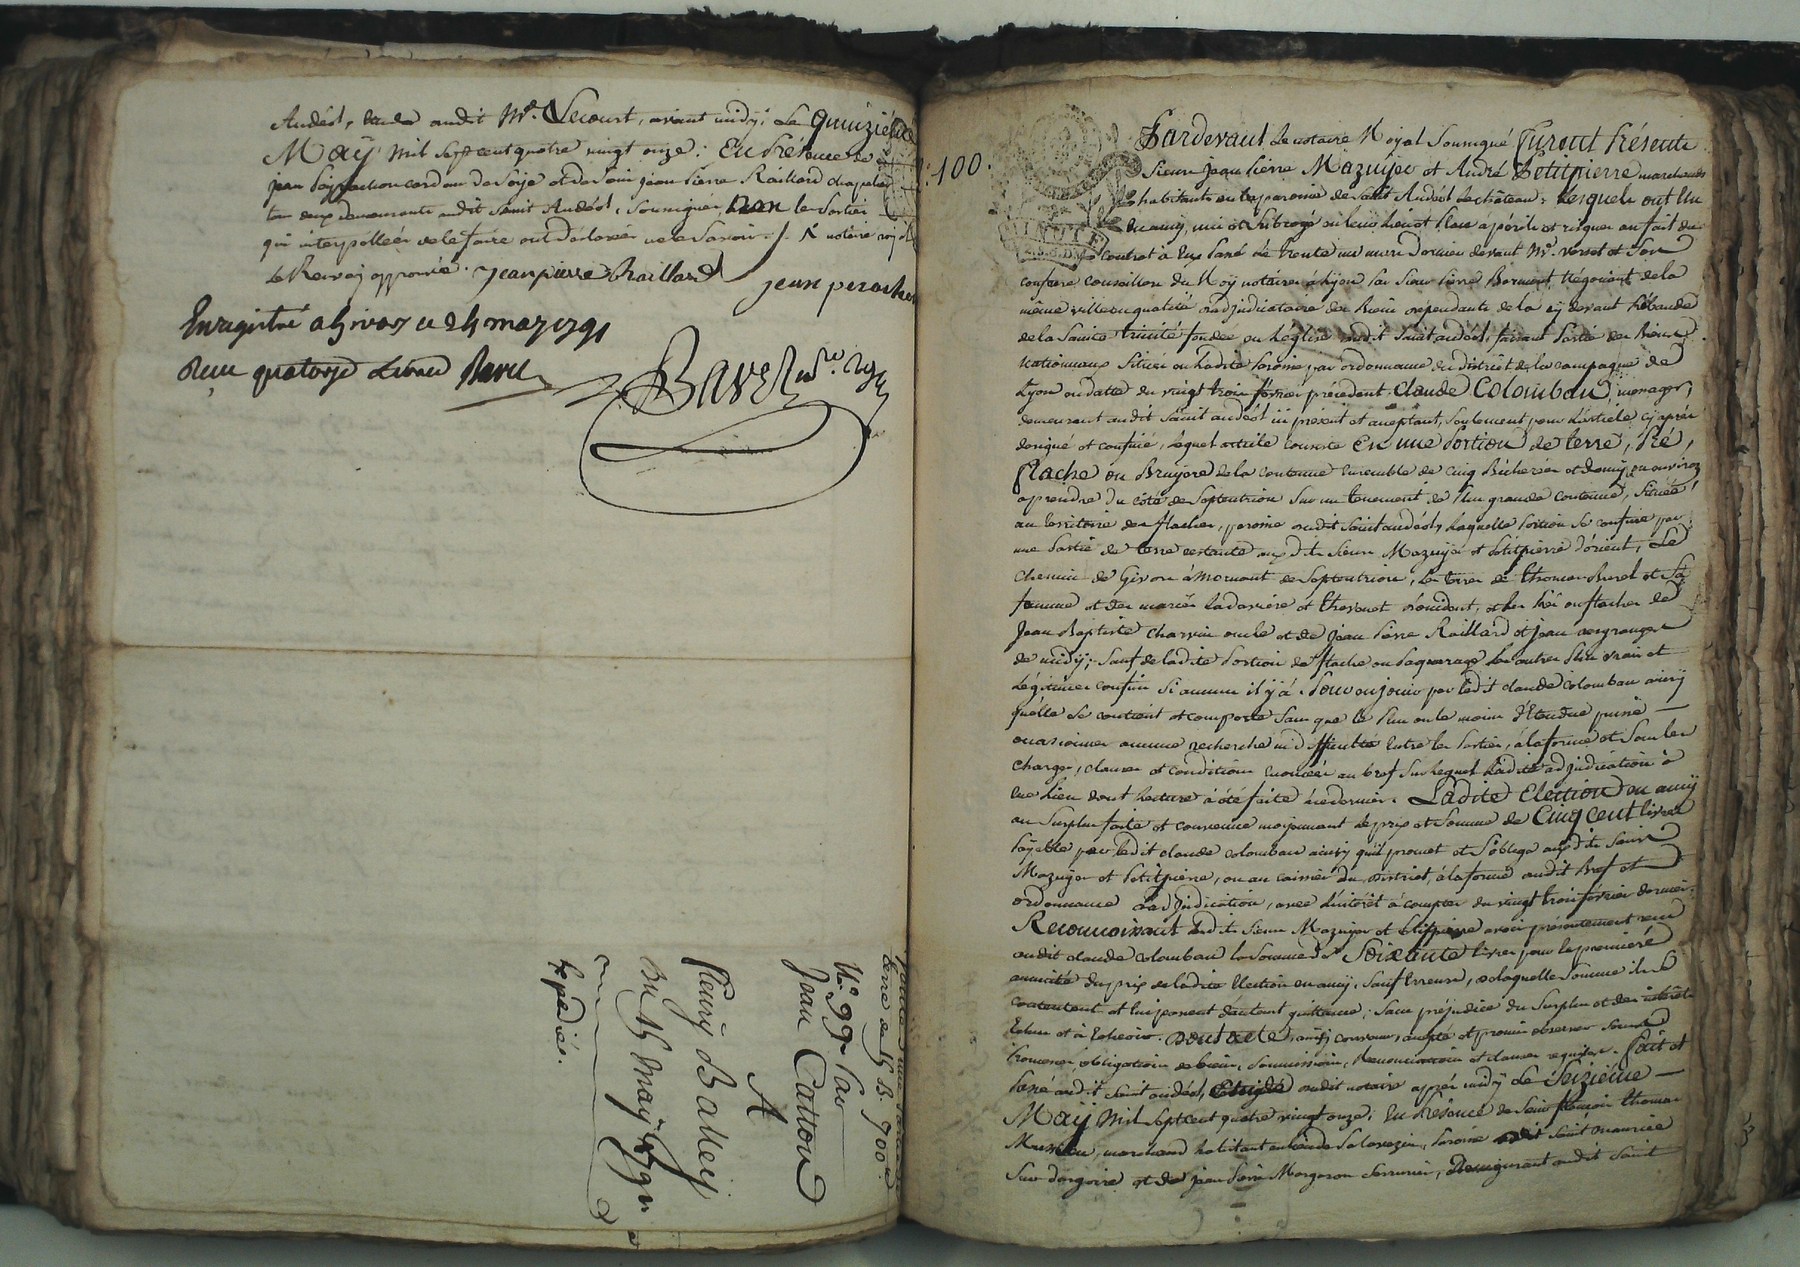 Andéol, etude audit Me. Lecourt, avant midy; Le Quinzieme
May Mil sept cent quatre vingt onze: En Présence de
jean cordon de Soije et de Sieur jean Pierre Raillard chapelier
tous deux demeurants audit Saint Andéol, Soussignés, non les Parties
qui interpellées de le faire ont déclaré ne le Savoir ./. & notaire royal
le Renvoy approuvé. jean pierre Raillard jean perachon
Enregistré a Givors le 24 may 1791
Reçu quatorze Livres Bavet
Bavet nre. Roy
Vente d'une
terre de 5 B. 900 #
N° 99 Par
Jean Cattou
A
fleury Balley
Du 15 may 1791
Expédié.
100.
Pardevant Le notaire Royal Soussigné furent Présents
Sieurs Jean Pierre Mazuyer et André Petitpierre marchands
habitants en la paroisse de Saint Andéol le château; Lesquels ont Elu
en amy, mis et Subrogé en leur lieu et place à périls et risques au fait du
contrat à Eux passé le trente un mars dernier devant Me. Verset et Son
confrere Conseillers du Roy notaires à Lyon par Sieur Pierre Bermont Négociant de la
même ville en qualité d'adjudicataire des Biens dépendants de la cy devant Prébende
de la Sainte trinité fondée en l'eglise dudit Saint andéol, faisant Partie des Biens
Nationnaux Situés en Ladite Paroisse par ordonnance du District de la campagne de
Lyon en datte du vingt trois février précédent. Claude Colomban, ménager,
demeurant audit Saint andéol ici présent et aceptant, Seulement pour L'article cy après
désigné et confiné, Lequel article consiste En une Portion de terre, Pré,
flache ou Bruyere de la contenue ensemble de cinq Bicherées et demy ou environ
a prendre du côté de Septentrion Sur un tenement de Plus grande contenue, Située
au territoire des flaches, paroisse dudit Saint andéol, Laquelle Portion Se confine par
une Partie de terre restante auxdits Sieurs Mazuyer et Petitpierre d'orient, Le
chemin de Givors à Mornant de Septentrion, Les terres de thomas Burel et Sa
femme et des mariés Ladavière et thevenet d'occident, et Les Prés ou flaches de
Jean Baptiste Charvin oncle et de Jean Pierre Raillard et jean desgranges
de midy; Sauf de ladite Portion de flache ou Paquerage Les autres Plus vrais et
Légitimes confins Si aucuns il y a. Pour en jouir par Ledit claude Colomban ainsy
qu'elle Se contient et comporte Sans que Le Plus ou le moins d'Etendue puisse
occasionner aucune recherche ni difficulté Entre les Parties, à la forme et Sous les
charges, clauses et conditions Enoncées au bref Sur Lequel Ladite adjudication a
Eue Lieu dont Lecture a été faite à ce dernier. Ladite Election en amy
au Surplus faite et convenue moyennant le prix et Somme de Cinq cent livres
Payable par ledit claude colomban ainsy qu'il promet et S'oblige auxdits Sieurs
Mazuyer et Petitpierre, ou au caissier du District, à la forme audit Bref et
ordonnance d'adjudication, avec L'intérêt à compter du vingt trois février dernier.
Reconnoissant Lesdits Sieurs Mazuyer et Petitpierre avoir présentement reçu
dudit claude colomban La Somme de Soixante livres pour La premiere
annuité du prix de ladite Election en amy, Sauf Erreur, de laquelle Somme ils Se
contentent et lui passent d'autant quittance, Sans préjudice du Surplus et des intérêts
Echus et à Echeoir. Dont acte, ainsy convenu, accepté et promis observer Sous
Promesses, obligations de biens, Soumissions, Renonciations et clauses requises. fait et
Passé audit Saint andéol, Etude dudit notaire après midy Le Seizième
May Mil Sept cent quatre vingt onze; En Présence de Sieur thomas
marchand habitant en Paroisse dudit Saint Maurice
Sur dargoire et de jean Pierre Margaron Serrurier, Demeurant audit Saint